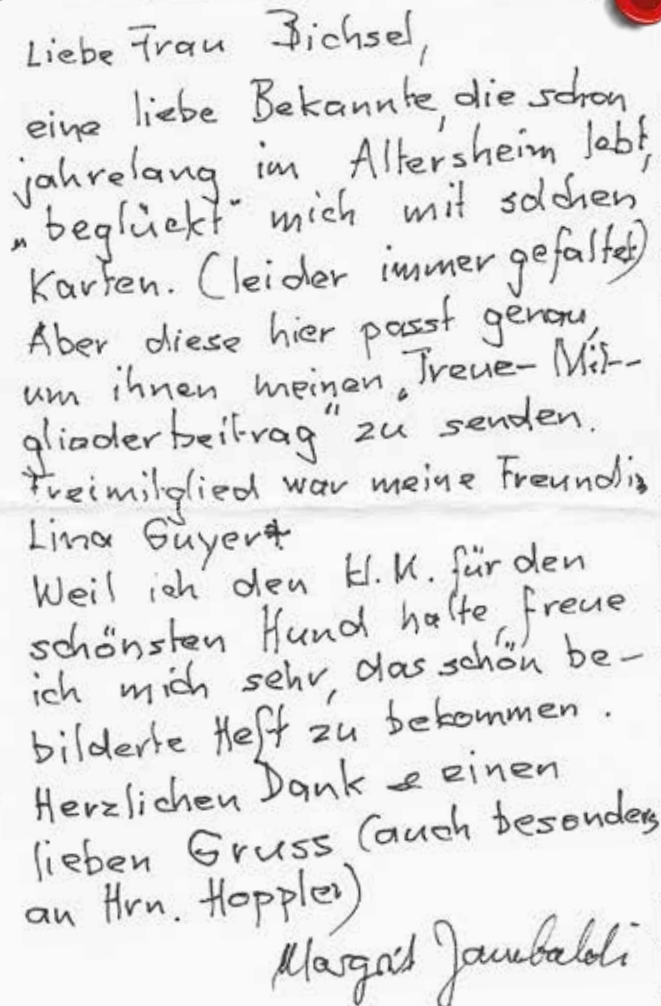 Liebe Frau Bichsel,
eine liebe Bekannte, die schon
jahrelang im Altersheim lebt,
„beglückt" mich mit solchen
Karten. (leider immer gefaltet)
Aber diese hier passt genau,
um ihnen meinen „Treue-Mit-
gliederbeitrag" zu senden.
Freimitglied war meine Freundin
Lina Guyer†
Weil ich den H.K. für den
schönsten Hund halte, freue
ich mich sehr, das schön be-
bilderte Heft zu bekommen.
Herzlichen Dank & einen
lieben Gruss (auch besonders
an Hrn. Hoppler)
Margrit